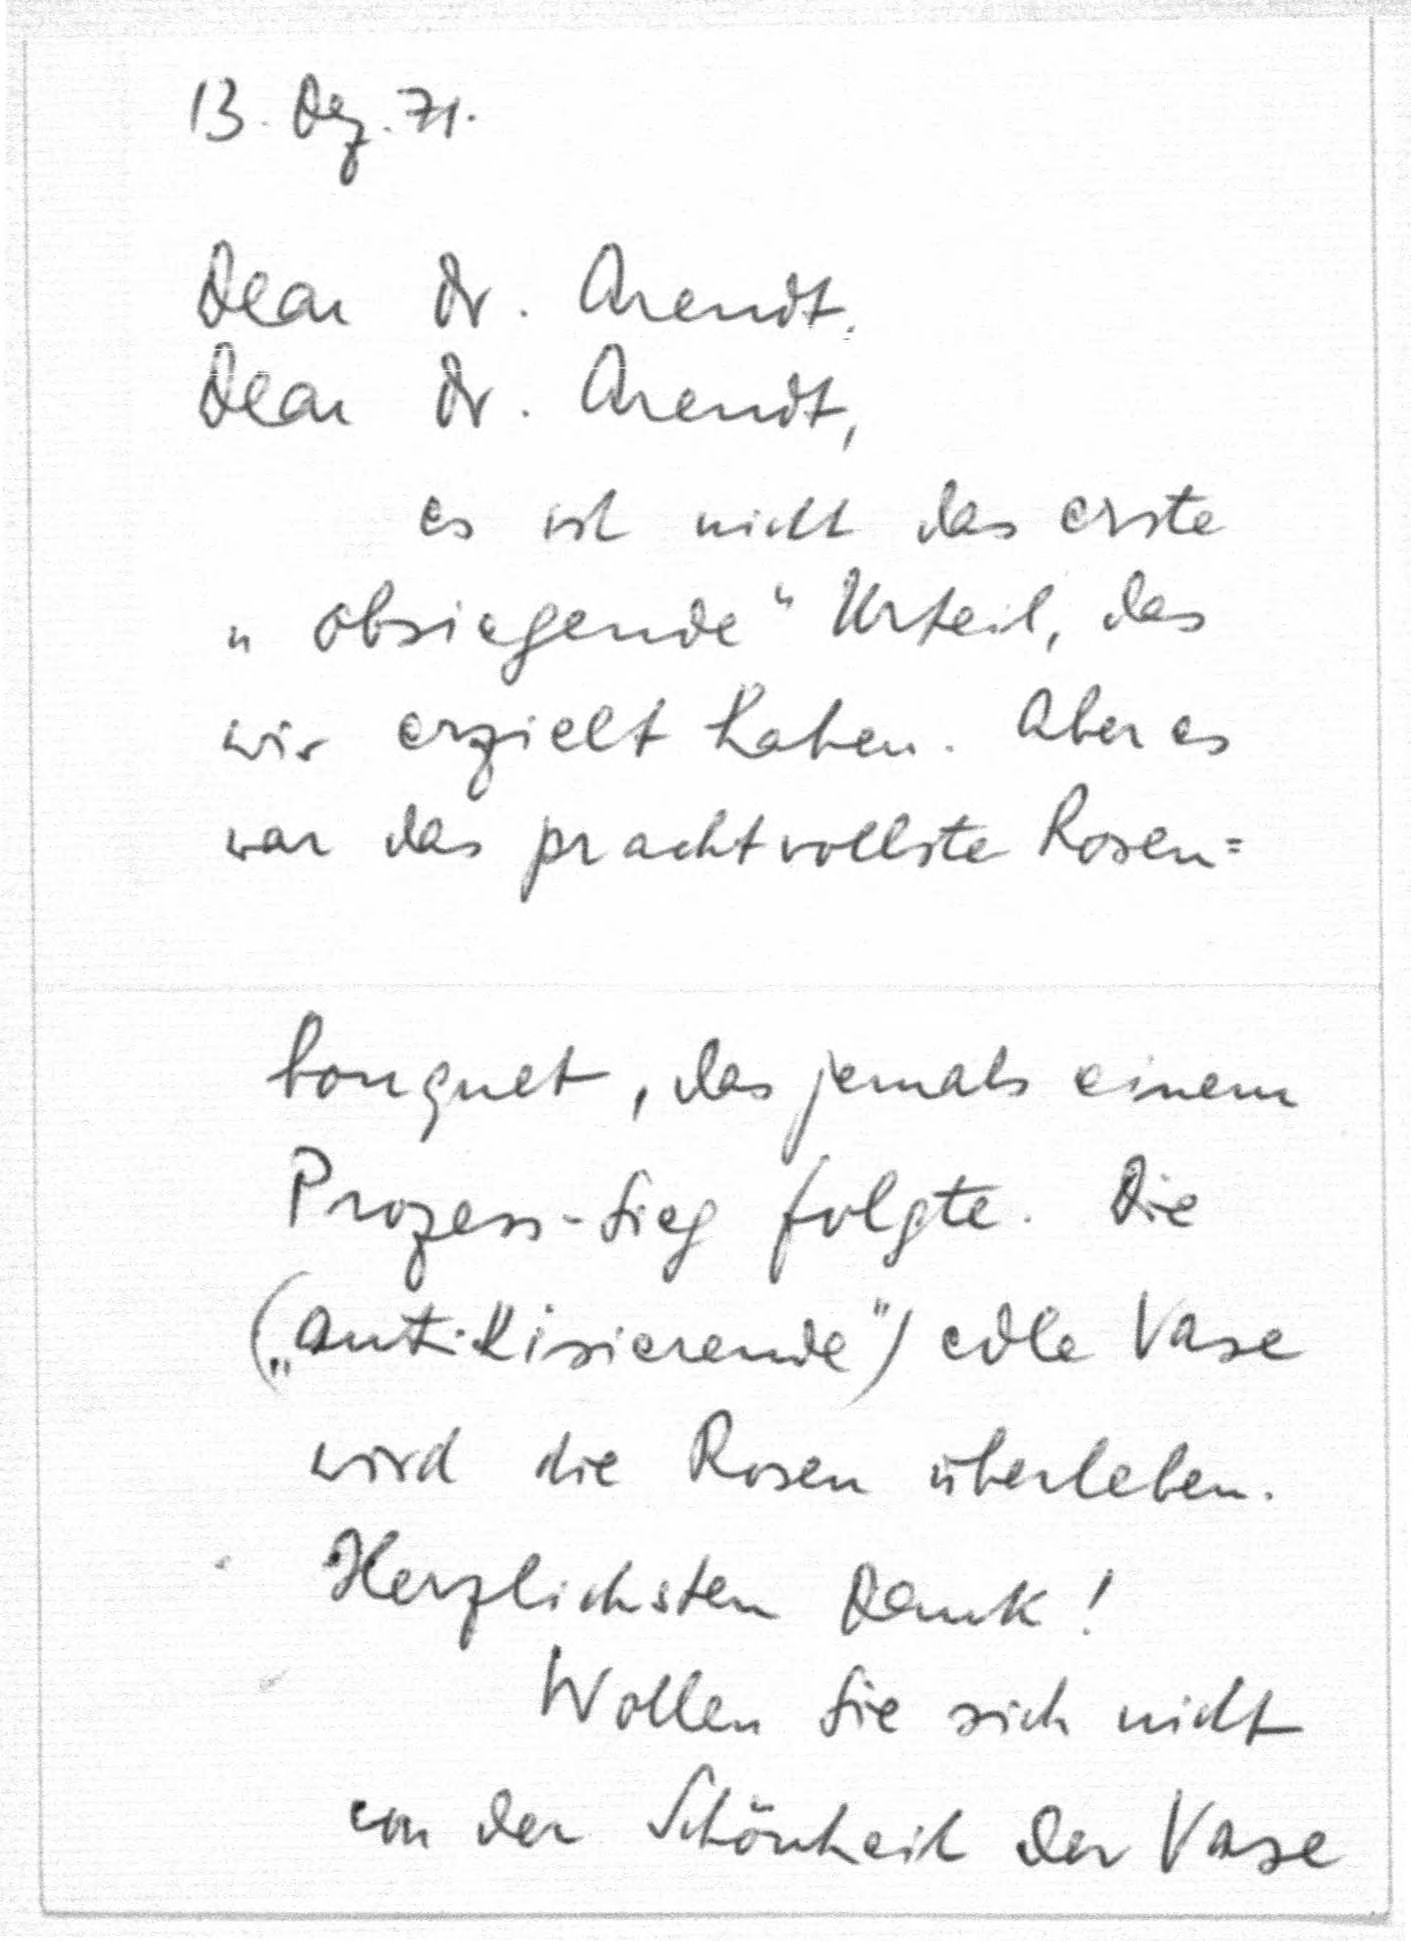 13. Dez. 71.
Dear Dr. Arendt,
Dear Dr. Arendt,
es ist nicht das erste
„obsiegende“ Urteil, das
wir erzielt haben. Aber es
war das prachtvollste Rosen=
bouquet, das jemals einem
Prozess-Sieg folgte. Die
(„antikisierende“) edle Vase
wird die Rosen überleben.
Herzlichsten Dank!
Wollen Sie sich nicht
von der Schönheit der Vase